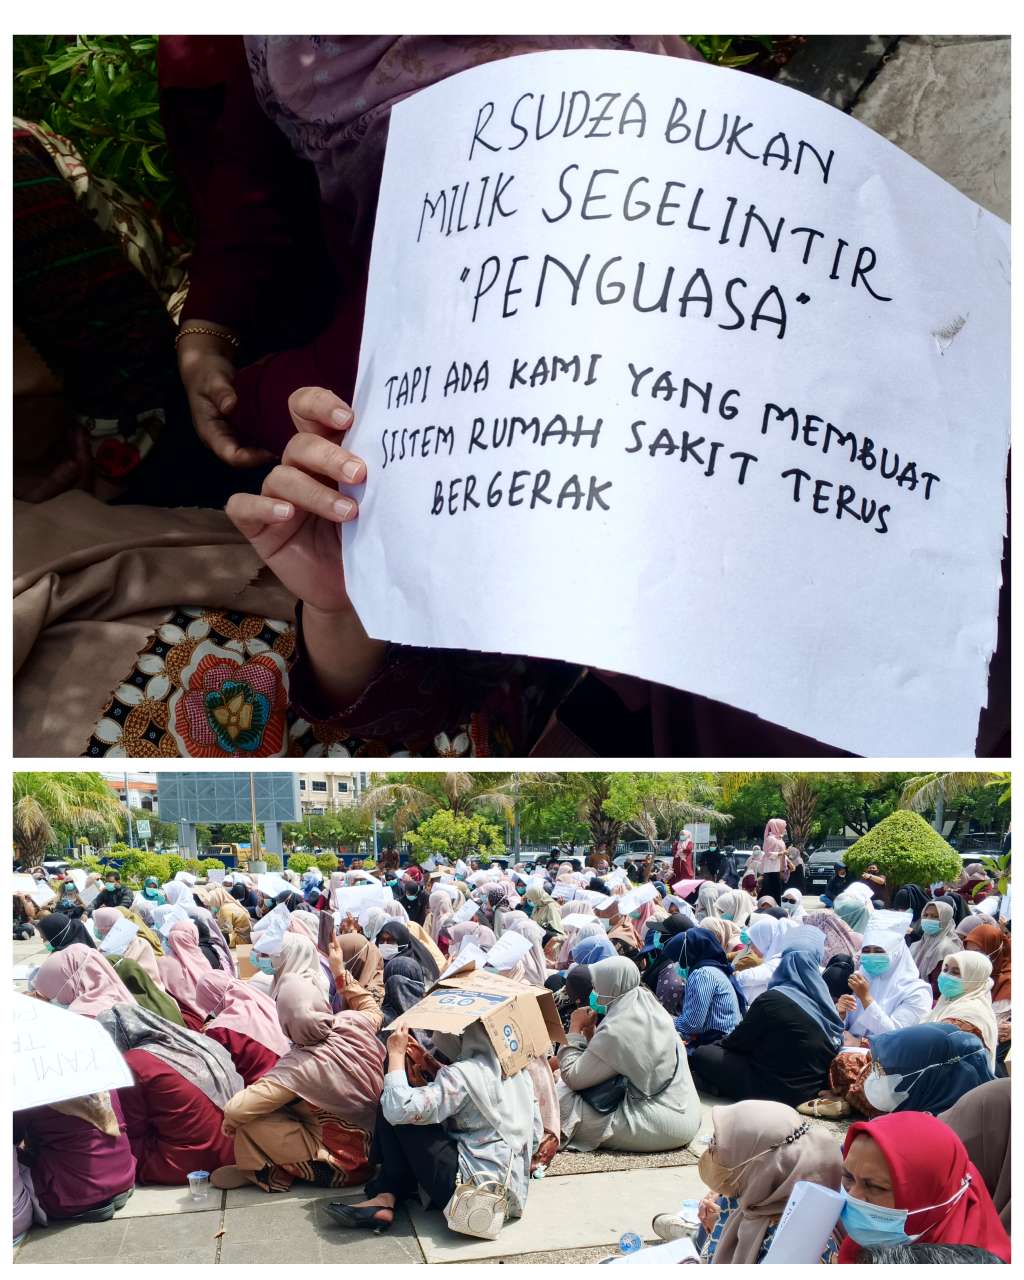 RSUDZA BUKAN
MILIK SEGELINTIR
"PENGUASA"
TAPI ADA KAMI YANG MEMBUAT
SISTEM RUMAH SAKIT TERUS
BERGERAK
KAMI